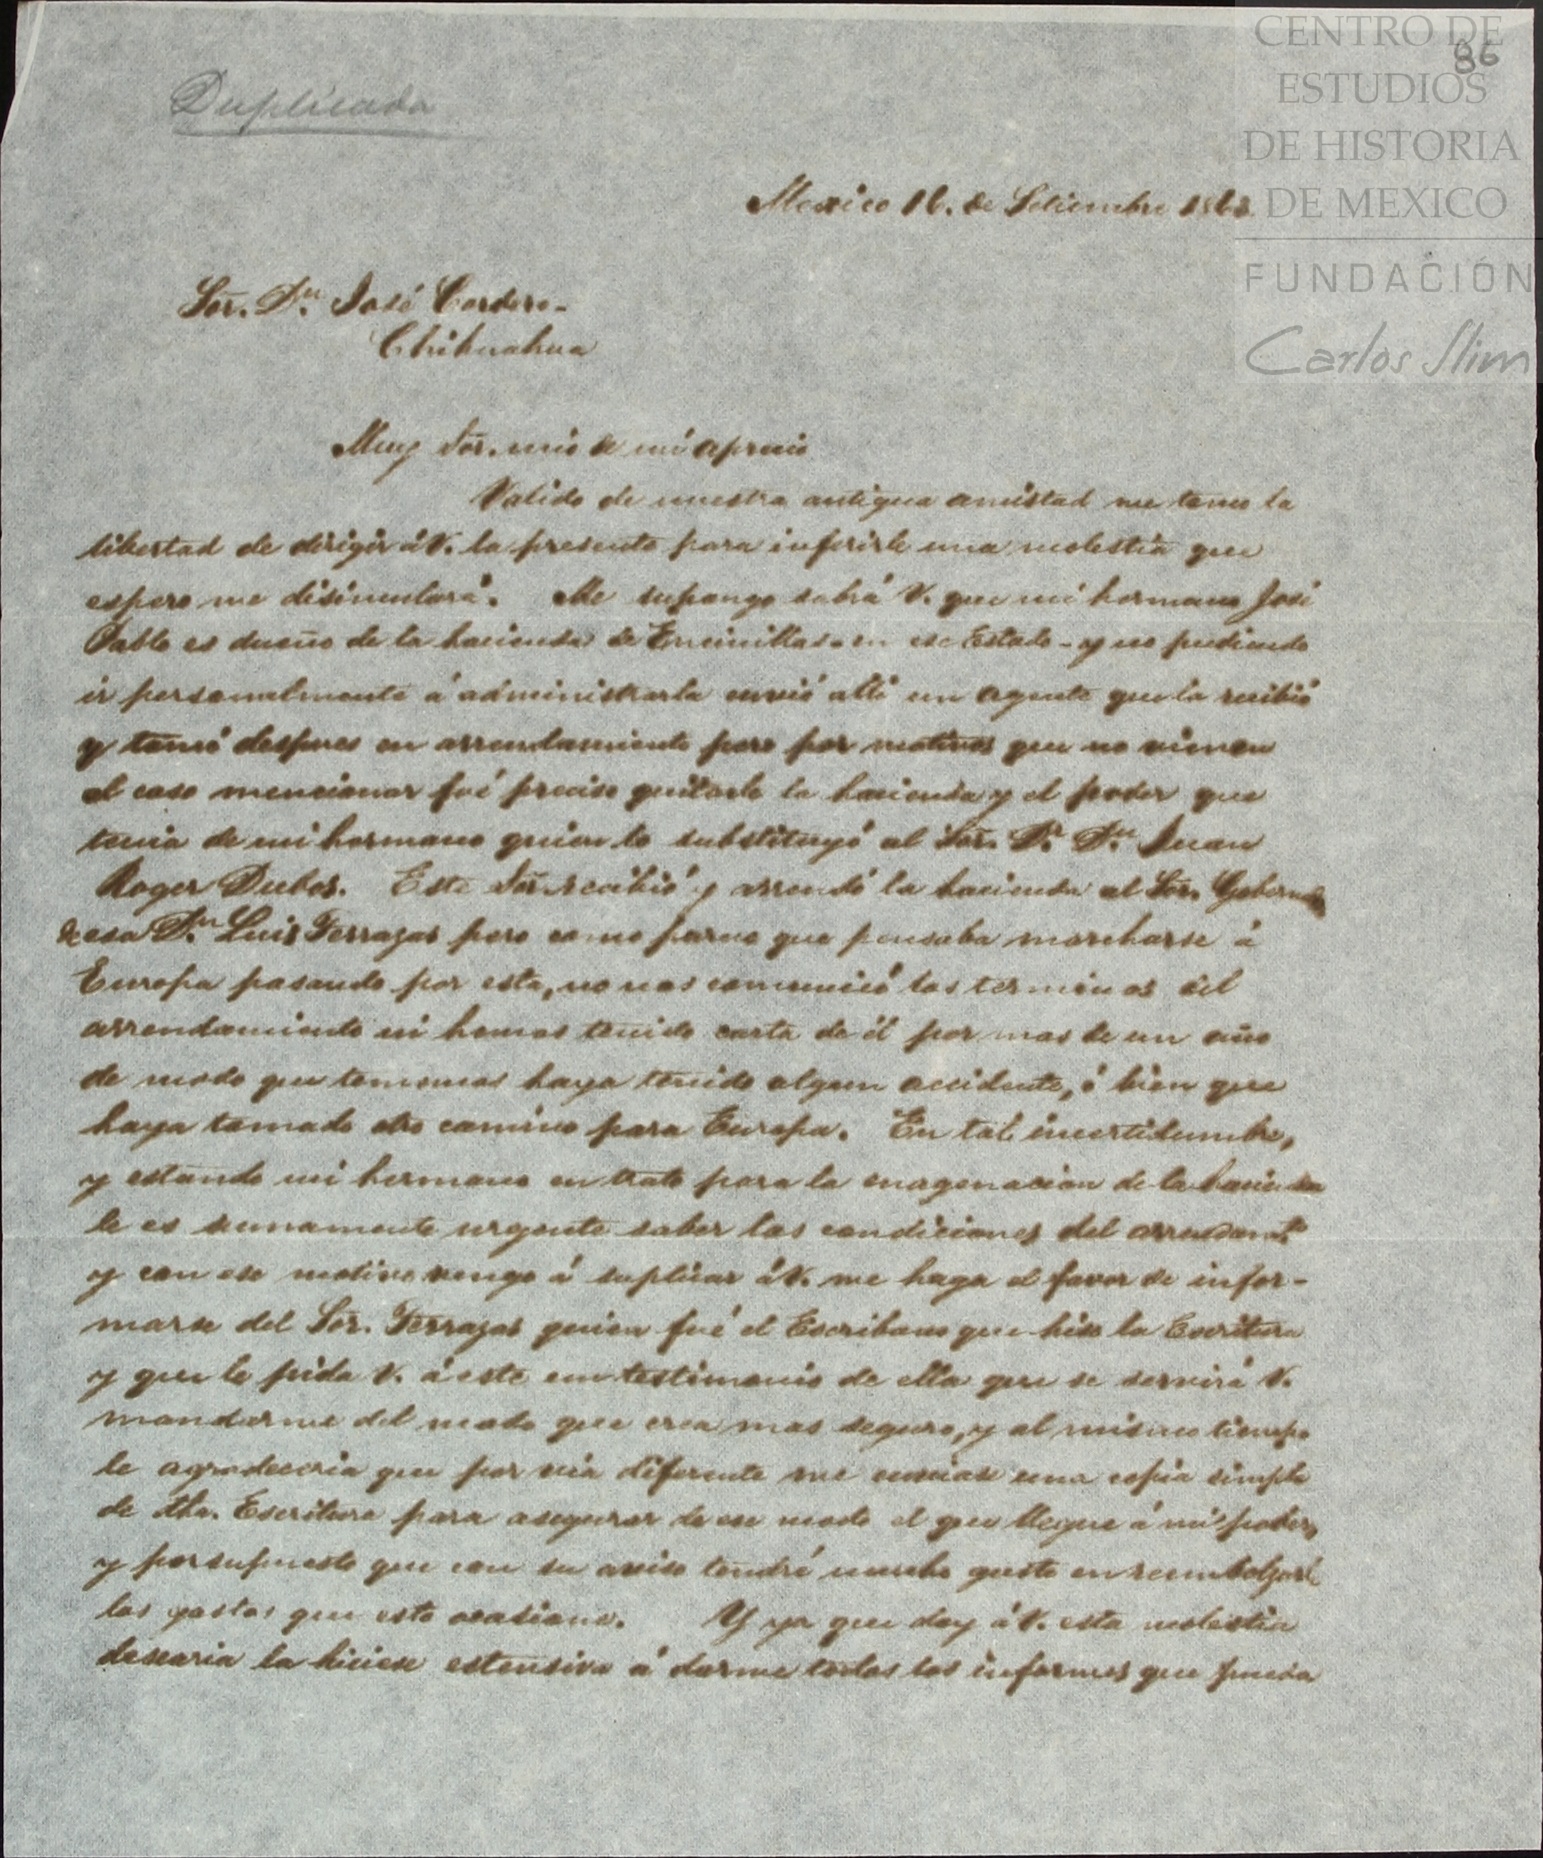 CENTRO DE
ESTUDIOS
DE HISTORIA
DE MEXICO
FUNDACIÓN
Carlos Slim
86
Duplicada
Mexico 16. de Setiembre 186
Sor. Dn. José Cordero-
Chihuahua
Muy Sor. mio de mi aprecio
Valido de nuestra antigua amistad me tomo la
libertad de dirigir á V. la presente para inferirle una molestia que
espero me disimulará. Me supongo sabrá V. que mi hermano José
Pablo es dueño de la hacienda de Encinillas - en ese Estado - y no pudiendo
ir personalmente á administrarla envió allí un agente que la recibió
y tomó despues en arrendamiento pero por motivos que no vienen
al caso mencionar fué preciso quitarle la hacienda y el poder que
tenia de mi hermano quien lo substituyó al Sor. Dr. Dn. Juan
Roger Dubos. Este Sor. recibió y arrendó la hacienda al Sor. Gobernador
de esa Dn. Luis Terrazas pero como parece que pensaba marcharse á
Europa pasando por esta, no nos comunicó los terminos del
arrendamiento ni hemos tenido carta de él por mas de un año
de modo que tememos haya tenido algun accidente, ó bien que
haya tomado otro camino para Europa. En tal incertidumbre,
y estando mi hermano en trato para la enagenacion de la hacienda
le es sumamente urgente saber las condiciones del arrendamto.
y con ese motivo vengo á suplicar á V. me haga el favor de infor-
marse del Sor. Terrazas quien fué el Escribano que hiso la Escritura
y que le pida V. á este un testimonio de ella que se servirá V.
mandarme del modo que crea mas seguro, y al mismo tiempo
le agradeceria que por via diferente me enviase una copia simple
de dha. Escritura para asegurar de ese modo el que llegue á mi poder,
y por supuesto que con su aviso tendré mucho gusto en reembolzarle
los gastos que esto ocasione. Y ya que doy á V. esta molestia
desearia la hiciese estensiva á darme todos los informes que pueda